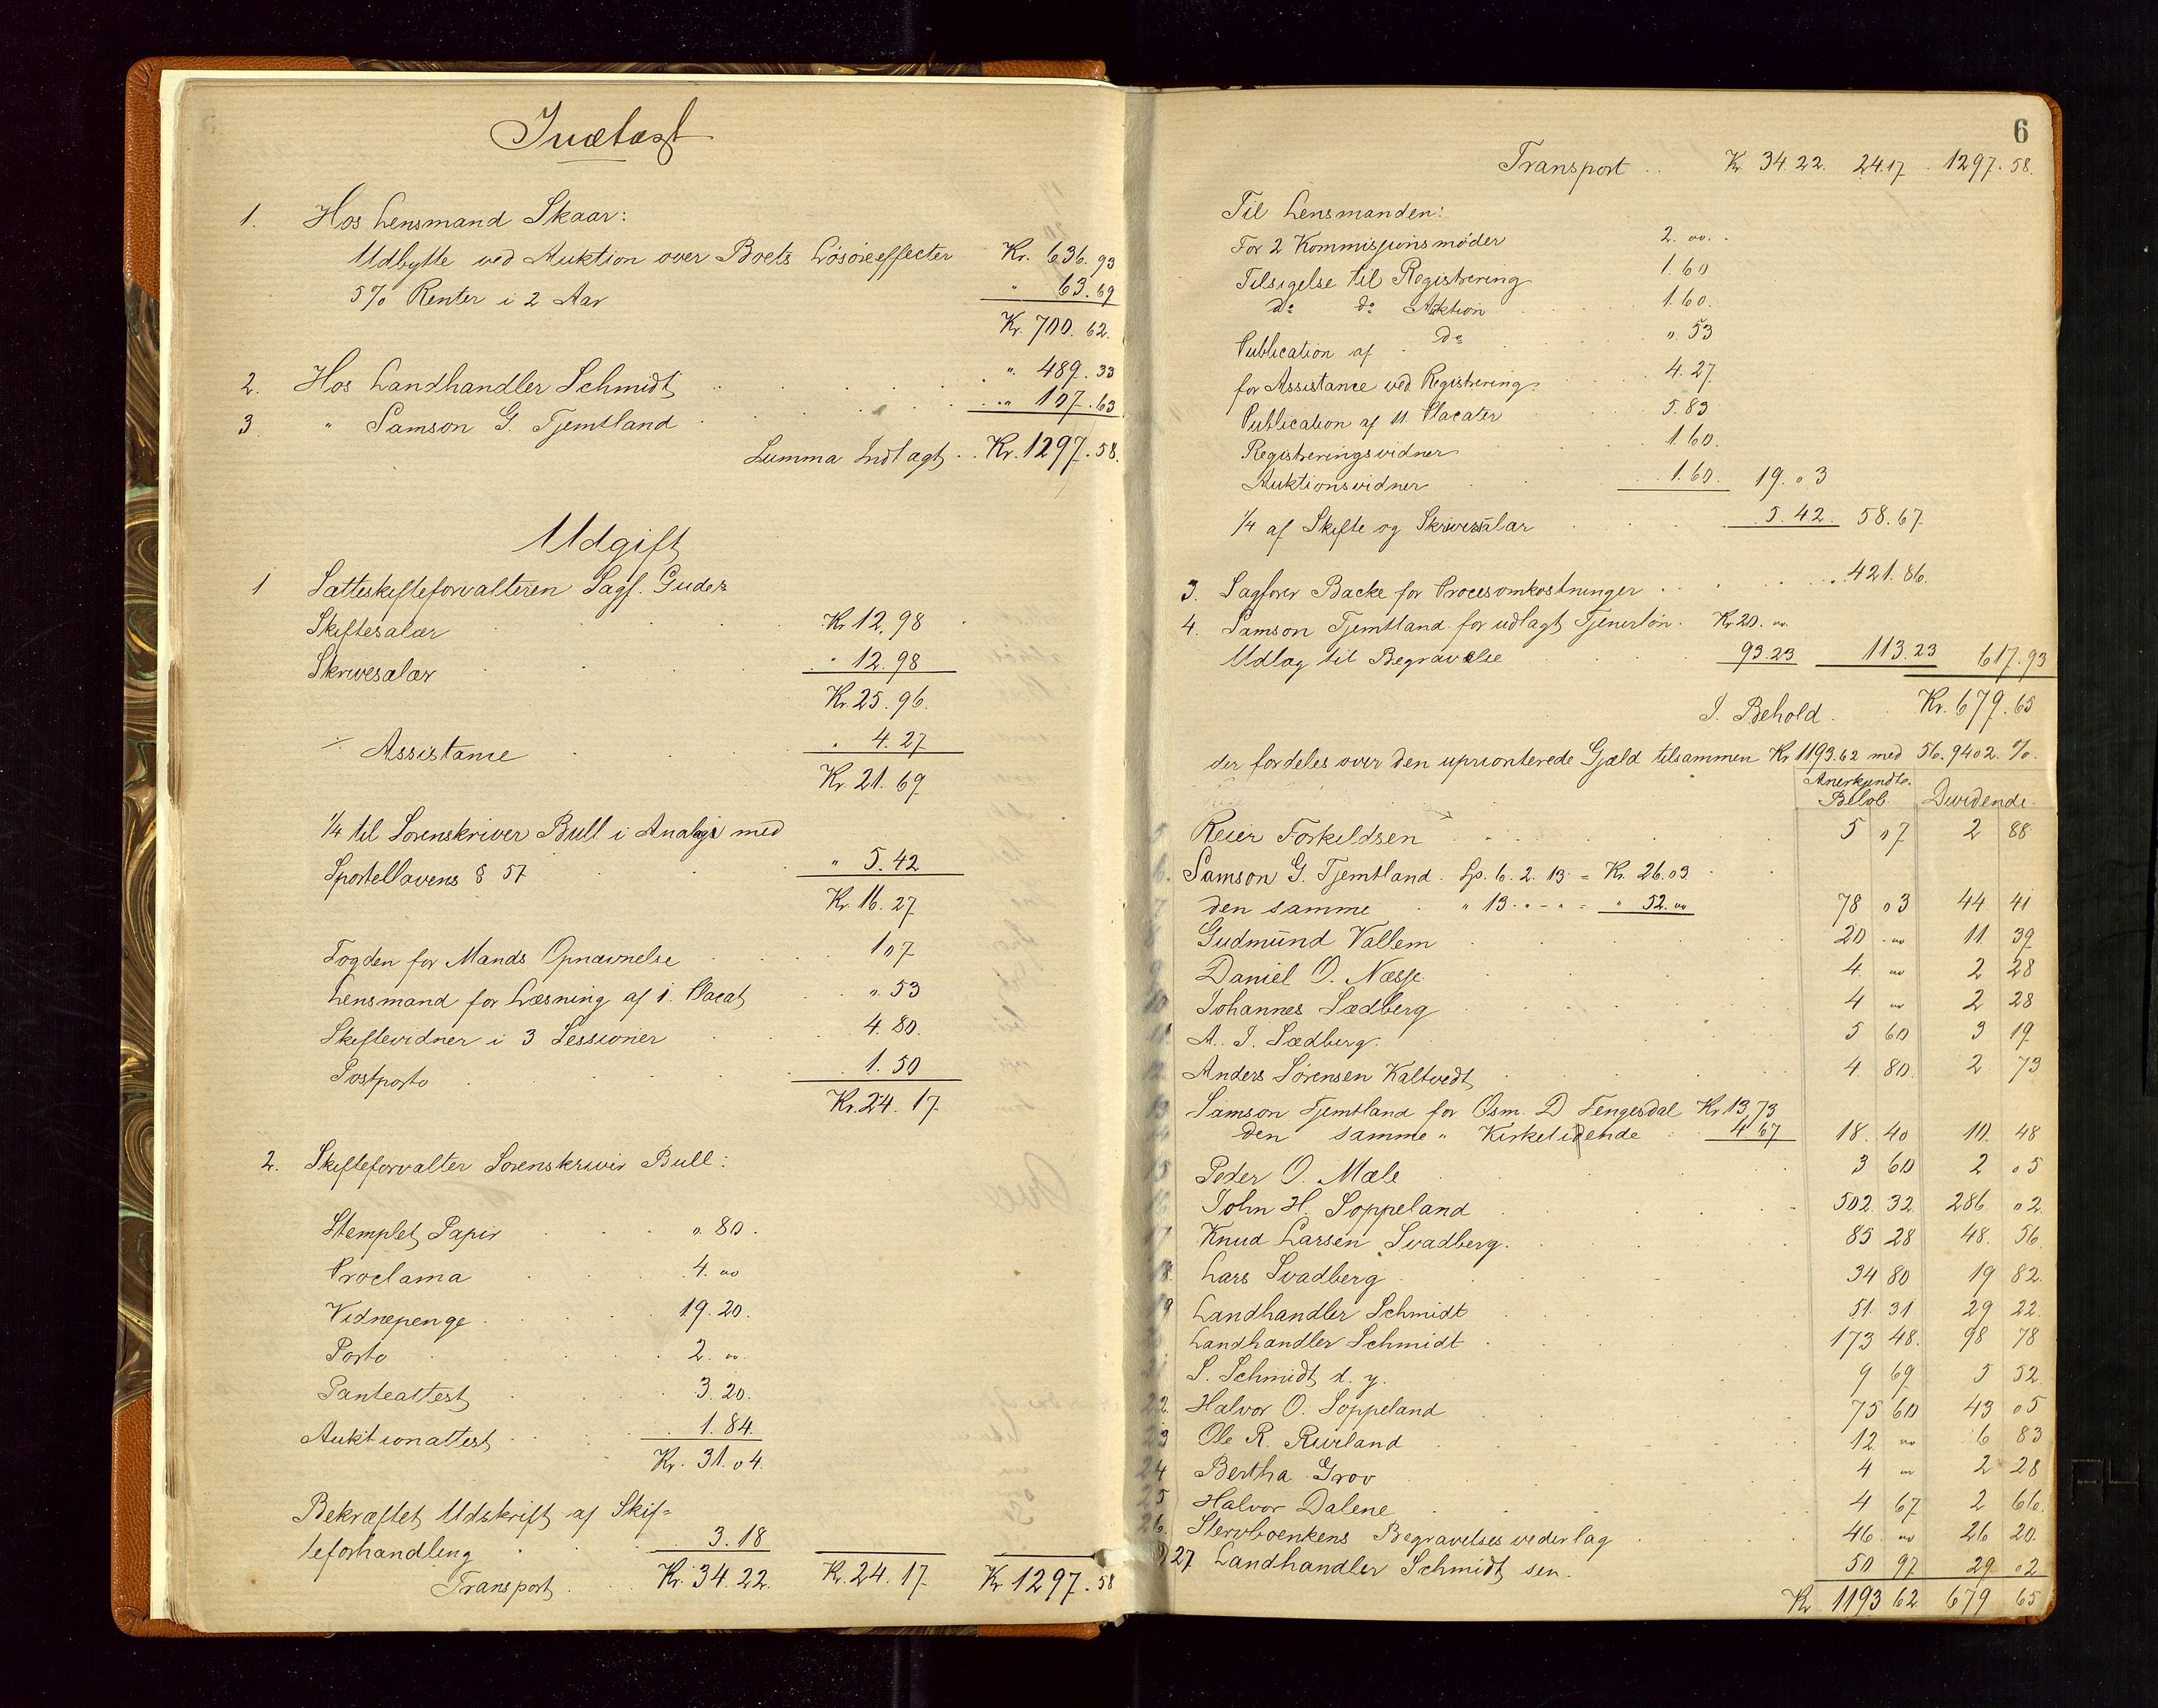 Indtægt
1. Hos Lensmand Skaar:
Udbytte ved Auktion over Boets Løsøreeffecter Kr. 636.93
5% Renter i 2 Aar " 63.69
Kr. 700.62.
2. Hos Landhandler Schmidt " 489.33
3 " Samson G. Tjemtland " 107.63
Summa Indtægt Kr. 1297.58.
Udgift
1 Sætteskifteforvalteren Sagf. Gude:
Skiftesalær Kr 12.98
Skrivesalær " 12.98
Kr. 25.96.
÷ Assistance " 4.27
Kr. 21.69
1/4 til Sorenskriver Bull i Analogi med
Sportellovens § 57 " 5.42
Kr. 16.27
Fogden for Mands Opnævnelse 1 07
Lensmand for Læsning af 1. Placat ". 53
Skiftevidner i 3 Sessioner 4.80.
Postporto 1.50
Kr. 24.17
2. Skifteforvalter Sorenskriver Bull:
Stemplet Papir ". 80.
Proclama 4. oo
Vidnepenge 19.20.
Porto 2. oo.
Panteattest 3.20.
Auktionattest 1.84.
Kr. 31.04.
Bekræftet Udskrift af Skif=
teforhandling 3.18
Transport Kr. 34.22. Kr. 24.17 Kr 1297.58
6
Transport .. Kr. 34.22. 24.17 1297.58.
Til Lensmanden:
For 2 Kommissjonsmøder 2. oo.
Tilsigelse til Registrering 1.60
do do Auktion 1.60.
Publication af do ". 53
for Assistance ved Registrering 4.27
Publication af 11 Placater 5.83
Registreringsvidner 1.60.
Auktionsvidner 1.60. 19.03
1/4 af Skifte og Skrivesalær 5.42. 58.67
3. Sagfører Backe for Procesomkostninger 421.86.
4. Samson Tjemtland for udlagt Tjenerløn. Kr 20. oo
Udlag til Begravelse 93.23 113.23 617.93
I Behold Kr. 679.65
der fordeles over den uprioriterede Gjæld tilsammen Kr 1193.62 med 56.9402 %.
Anerkjendte Beløb. Dividende.
5 Reier Torkildsen 5 07 2 88
6. Samson G. Tjemtland. Sp. 6. 2. 13 = Kr. 26.03
7 den samme " 13. " - " = " 52. oo 78 03 44 41
8 Gudmund Vallem 20 oo 11 39
9 Daniel O. Næsse 4. oo 2 28
10 Johannes Sædberg 4 oo 2 28
11 A. J. Sædberg. 5 60 3 19
12 Anders Sørensen Kaltvedt 4 80. 2 73
13 Samson Tjemtland for Osm. D Tengesdal Kr 13,73
14 den samme " Kirketidende 4 67 18. 40 10. 48
15 Peder O. Mæle 3 60 2 05
16 John H. Soppeland 502. 32. 286. 02.
17 Knud Larsen Svadberg. 85 28 48. 56
18. Lars Svadberg 34 80 19 82.
19 Landhandler Schmidt 51. 31 29 22.
20 Landhandler Schmidt 173 48. 98 78
21 S. Schmidt d. y. 9 69 5 52.
22. Halvor O. Soppeland 75 60 43 05
23 Ole R. Rivrland 12 oo 6 83
24 Bertha Grov 4 oo 2 28
25 Halvor Dalene 4 67 2 66.
26. Stervboenkens Begravelsesvederlag 46. oo 26 20.
27 Landhandler Schmidt sen. 50 97 29 02
Kr 1193 62. 679 65